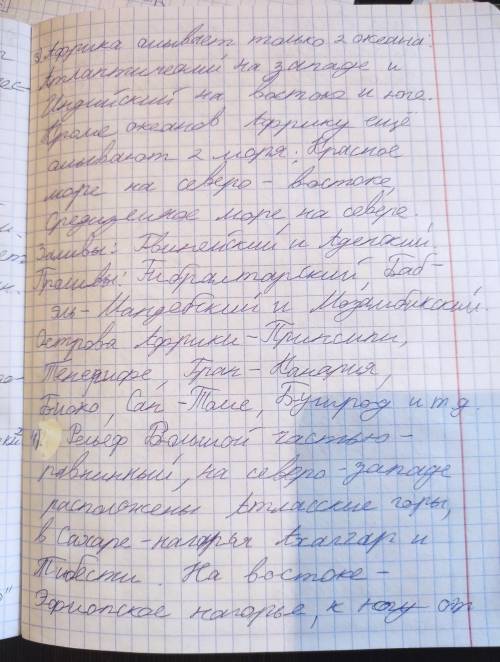 3) Африка омывает только 2 океана.
Атлантический на западе и
Индийский на востоке и юге.
Кроме океанов Африку ещё
омывают 2 моря: Красное
море на северо-востоке,
Средиземное море на севере.
Заливы: Гвинейский и Аденский.
Проливы: Гибралтарский, Баб-
эль-Мандебский и Мозамбикский.
Острова Африки-Принсипи,
Тенерифе, Гран-Канария,
Биоко, Сан-Томе, и т.д.
4). Рельеф Большой частью-
равнинный, на северо-западе
расположены Атласские горы,
в Сахаре-нагорья Ахаггар и
Тибести. На востоке-
Эфиопское нагорье, к югу от